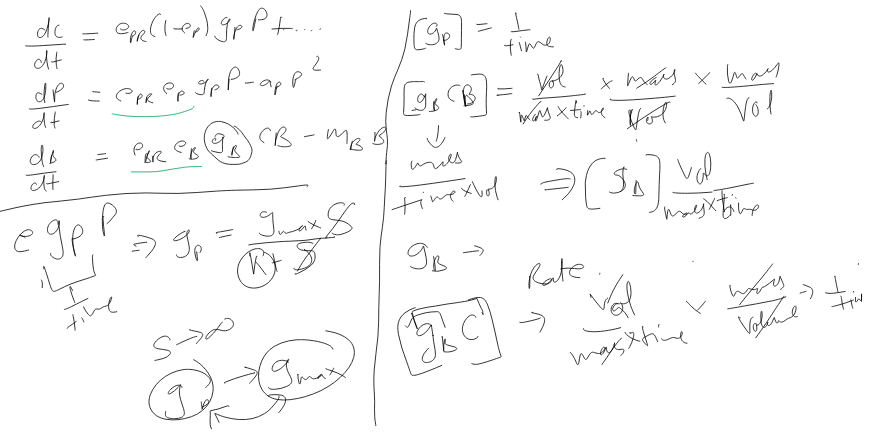 dc/dt = e_PR(1-e_P) g_P P + ....
dP/dt = e_PR e_P g_P P - a_P P^2
dB/dt = e_BR e_B g_B CB - m_B B
e g_P P ⇒ g_P = g_max S / K + S
1/time
S → ∞
g_P → g_max
[g_P] = 1/time
[g_B CB] = Vol/mass×time × mass/Vol × mass/Vol
↓
mass/time×vol ⇒ [g_B] Vol/mass×time
g_B →
Rate
[g_B C] → Vol/mass×time × mass/Volume → 1/tim